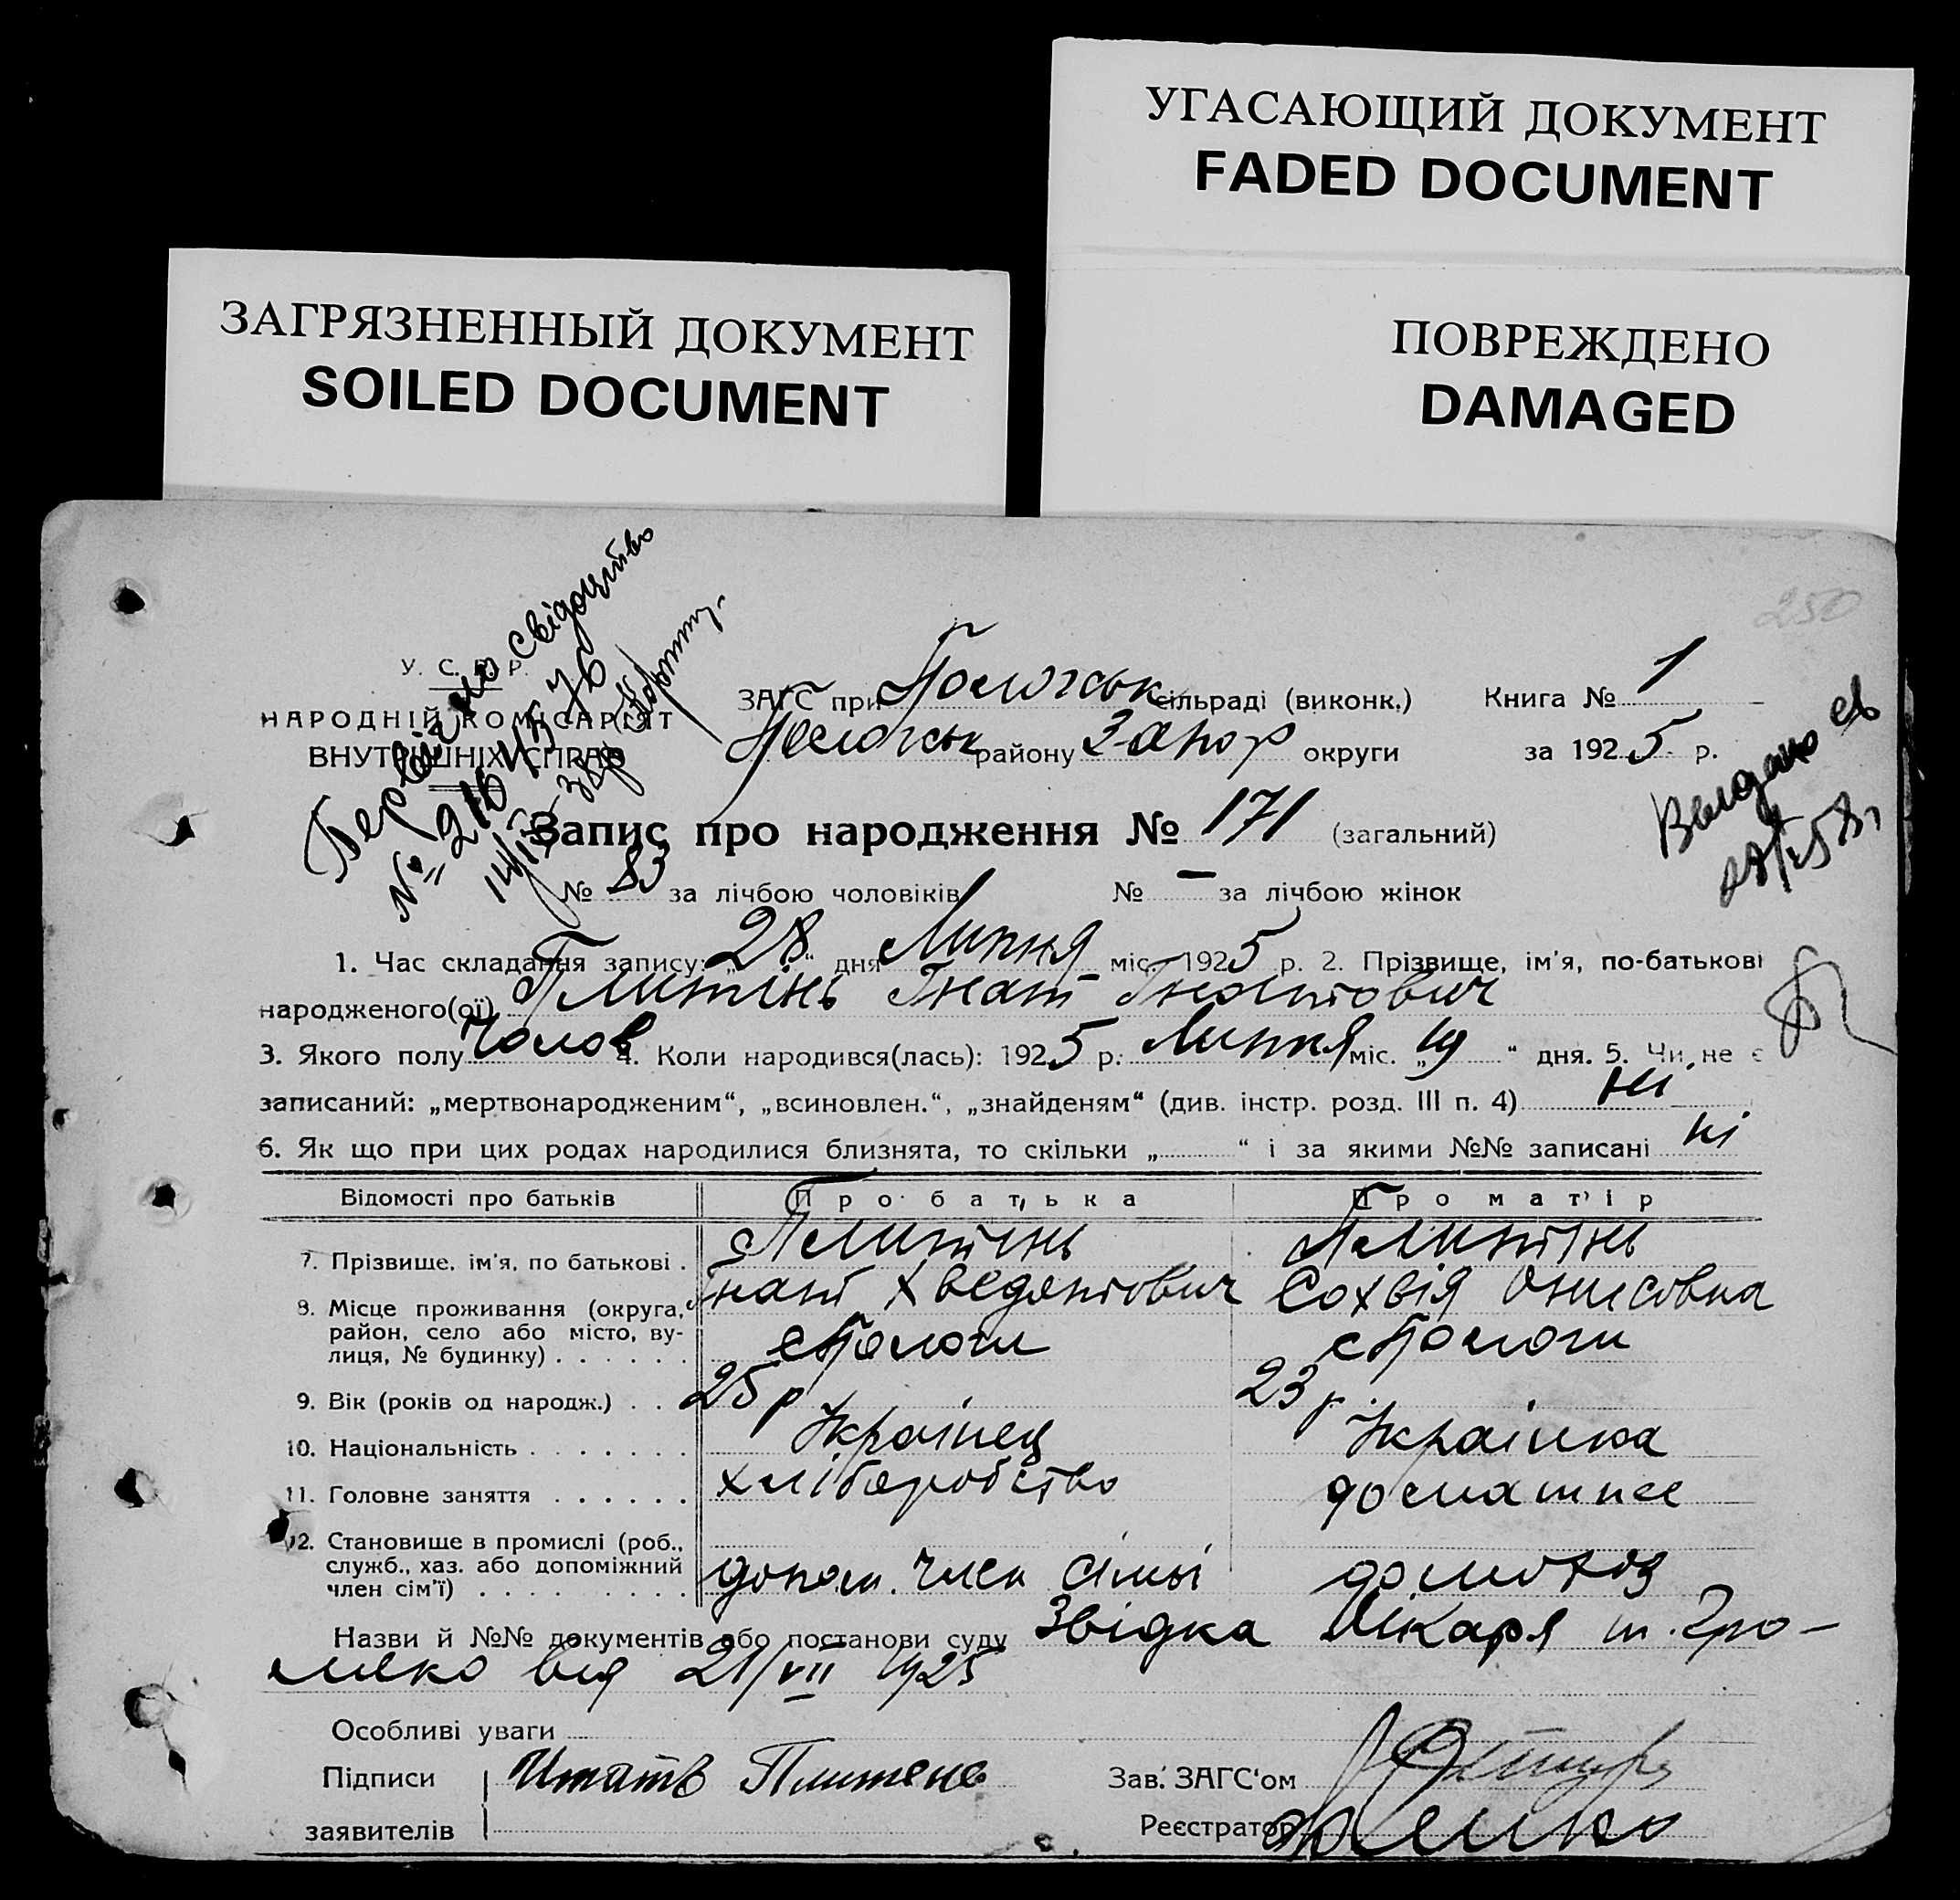 УГАСАЮЩИЙ ДОКУМЕНТ
FADED DOCUMENT
ЗАГРЯЗНЕННЫЙ ДОКУМЕНТ
SOILED DOCUMENT
ПОВРЕЖДЕНО
DAMAGED
250
свідоцтво
У. С. Р. Р.
НАРОДНІЙ КОМІСАРІЯТ
ВНУТРІШНІХ СПРАВ
ЗАГС при Пологськ сільраді (виконк.) Книга № 1
Пологськ району Запор округи за 1925 р.
Видано св
Запис про народження № 171 (загальний)
№ 83 за лічбою чоловіків № — за лічбою жінок
1. Час складання запису: „28“ дня Липня міс. 1925 р. 2. Прізвище, ім'я, по-батькові
народженого(ої) Плитінь Гнат Гнатович
3. Якого полу Чолов 4. Коли народився(лась): 1925 р. Липня міс. „19“ дня. 5. Чи не є
записаний: „мертвонародженим“, „всиновлен.“, „знайденям“ (див. інстр. розд. III п. 4) ні
6. Як що при цих родах народилися близнята, то скільки „ “ і за якими №№ записані ні
Відомості про батьків Про батька Про матір
7. Прізвище, ім'я, по батькові . Плитінь Плитінь
Гнат Сохвія Онисовна
8. Місце проживання (округа, район, село або місто, вулиця, № будинку) . . . . . . с Пологи с Пологи
9. Вік (років од народж.) . . 25 р 23 р.
10. Національність . . . . . . . Українец Українка
11. Головне заняття . . . . . . хліборобство домашнее
12. Становище в промислі (роб., служб., хаз. або допоміжний член сім'ї) . . . . . . . . . допом. член сімьі домохоз
Назви й №№ документів або постанови суду Звідка Лікаря т. Гро-
мако від 21/VII 1925
Особливі уваги
Підписи Плитень Зав. ЗАГС'ом
заявителів Реєстратор